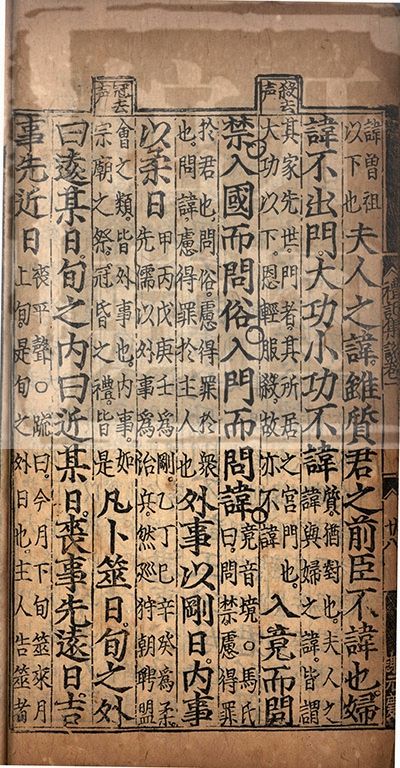 殺去
声
冠去
声
諱曾祖
以下也
夫人之諱雖質君之前臣不諱也婦
諱不出門。大功小功不諱
質猶對也。夫人之
諱與婦之諱。皆謂
其家先世。門者。其所居之宮門也。
大功以下。恩輕服殺。故亦不諱
入竟而問
禁。入國而問俗。入門而問諱。
竟音境。○馬氏
曰。問禁慮得罪
於君也。問俗。慮得罪於衆
也。問諱。慮得罪於主人也
外事以剛日。內事
以柔日
甲丙戊庚壬爲剛。乙丁巳辛癸爲柔
先儒以外事爲治兵。然廵狩朝聘盟
會之類。皆外事也。內事。如
宗廟之祭。冠昏之禮。皆是
凡卜筮日。旬之外
曰遠某日。旬之內曰近某日。喪事先遠日。吉
事先近日
喪平聲。○疏曰。今月下旬筮來月
上旬。是旬之外日也。主人告筮者
禮記集說卷一
廿八